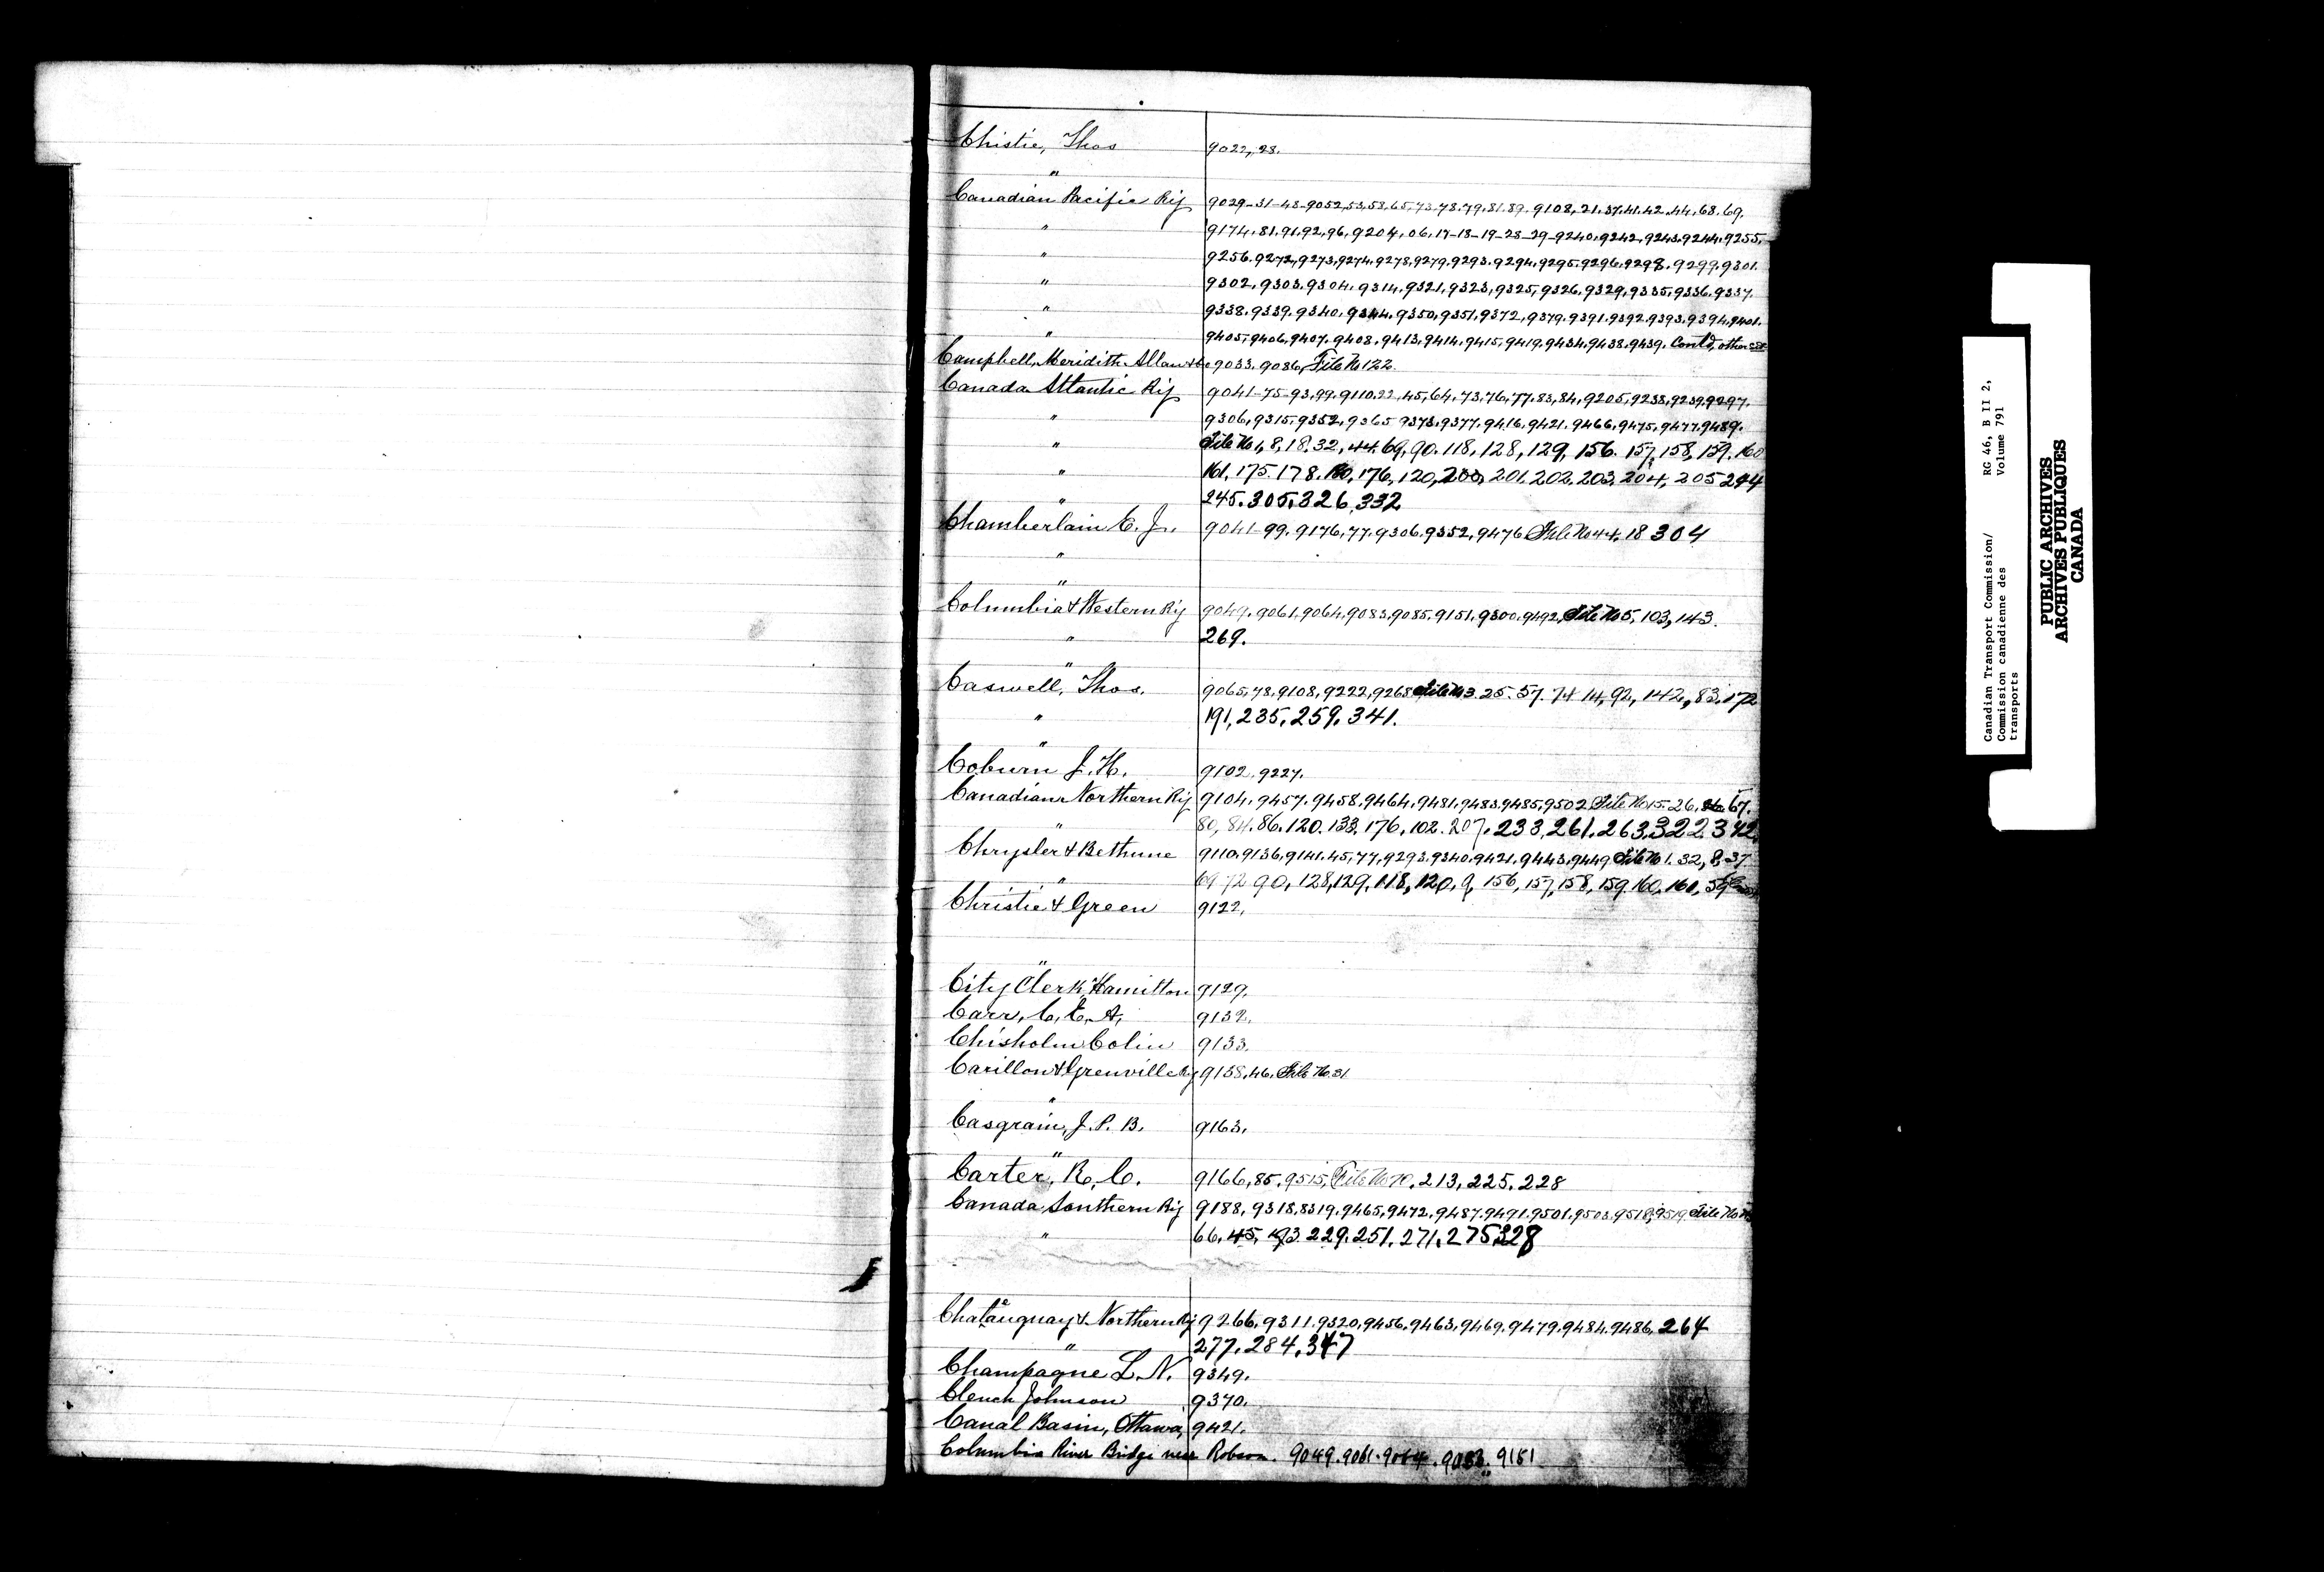 Christie, Thos 9022, 28.
"
Canadian Pacific Ry 9029-31-48-9052,53,58,65,73,78.79.81.89. 9108,21.37.41.42.44,68.69.
" 9174.81.91.92,96,9204,06,17-18-19-28-29-9240,9242,9243,9244.9255.
" 9256.9272,9273,9274.9278,9279.9293.9294.9295.9296.9298.9299.9301.
" 9302.9303.9304.9314.9321,9323,9325,9326.9329,9335,9336.9337.
" 9338.9339.9340.9344.9350,9351.9372,9379.9391.9392.9393.9394.9401.
" 9405,9406,9407.9408.9413,9414.9415.9419.9434.9438.9439. Cont'd, other
Campbell, Meridith. Allan & Co 9033.9086, File No 122.
Canada Atlantic Ry 9041-75-93,99.9110.22.45,64.73,76,77.83,84,9205,9238,9239.9297.
" 9306,9315,9352,9365 9373.9377.9416,9421.9466,9475,9477.9489.
" File No 1, 8, 18.32, 44.69, 90. 118, 128, 129, 156. 157, 158, 159. 160
" 161, 175. 178. 180, 176, 120, 200, 201. 202. 203, 204, 205 244
" 245.305.326.332
Chamberlain C. J. 9041-99.9176,77.9306.9352,9476 File No 44.18 304
"
"
Columbia & Western Ry 9049.9061.9064,9083.9085.9151.9300.9492, File No 5, 103, 143.
" 269.
"
Caswell, Thos. 9065,78,9108,9222,9268 File No 3. 25. 57. 74 14, 92, 142, 83, 172
" 191, 235, 259, 341.
"
Coburn J. H. 9102.9227.
Canadian Northern Ry 9104.9457.9458.9464.9481.9483.9485.9502. File No 15.26, 67.
" 80, 84. 86. 120. 133. 176, 102. 207. 233, 261. 263.322.342
Chrysler & Bethune 9110.9136,9141.45,77,9293.9340.9421.9443.9449 File No 1. 32, 8, 37
" 69 72 90, 128, 129, 118, 120, 9, 156, 157, 158, 159. 160, 161, 59
Christie & Green 9122.
"
City Clerk, Hamilton 9129.
Carr, C. E. A, 9132.
Chisholm Colin 9133.
Carillon & Grenville Ry 9138,46. File No. 31.
"
Casgrain, J. P. B. 9163.
"
Carter, R. C. 9166,85.9515, File No 70. 213, 225. 228
Canada Southern Ry 9188, 9318,8319.9465,9472.9487.9491.9501.9503.9518,9519. File No
" 66, 45, 193. 229. 251. 271. 275 328
Chateauguay & Northern Ry 9266.9311.9320,9456.9463,9469.9479.9484.9486. 264
" 277. 284. 347
Champagne L. N. 9349.
Clench Johnson 9370.
Canal Basin, Ottawa, 9421.
Columbia River Bridge near Robson. 9049.9061.9064.9083. 9151
Canadian Transport Commission/
Commission canadienne des
transports
RG 46, B II 2,
Volume 791
PUBLIC ARCHIVES
ARCHIVES PUBLIQUES
CANADA